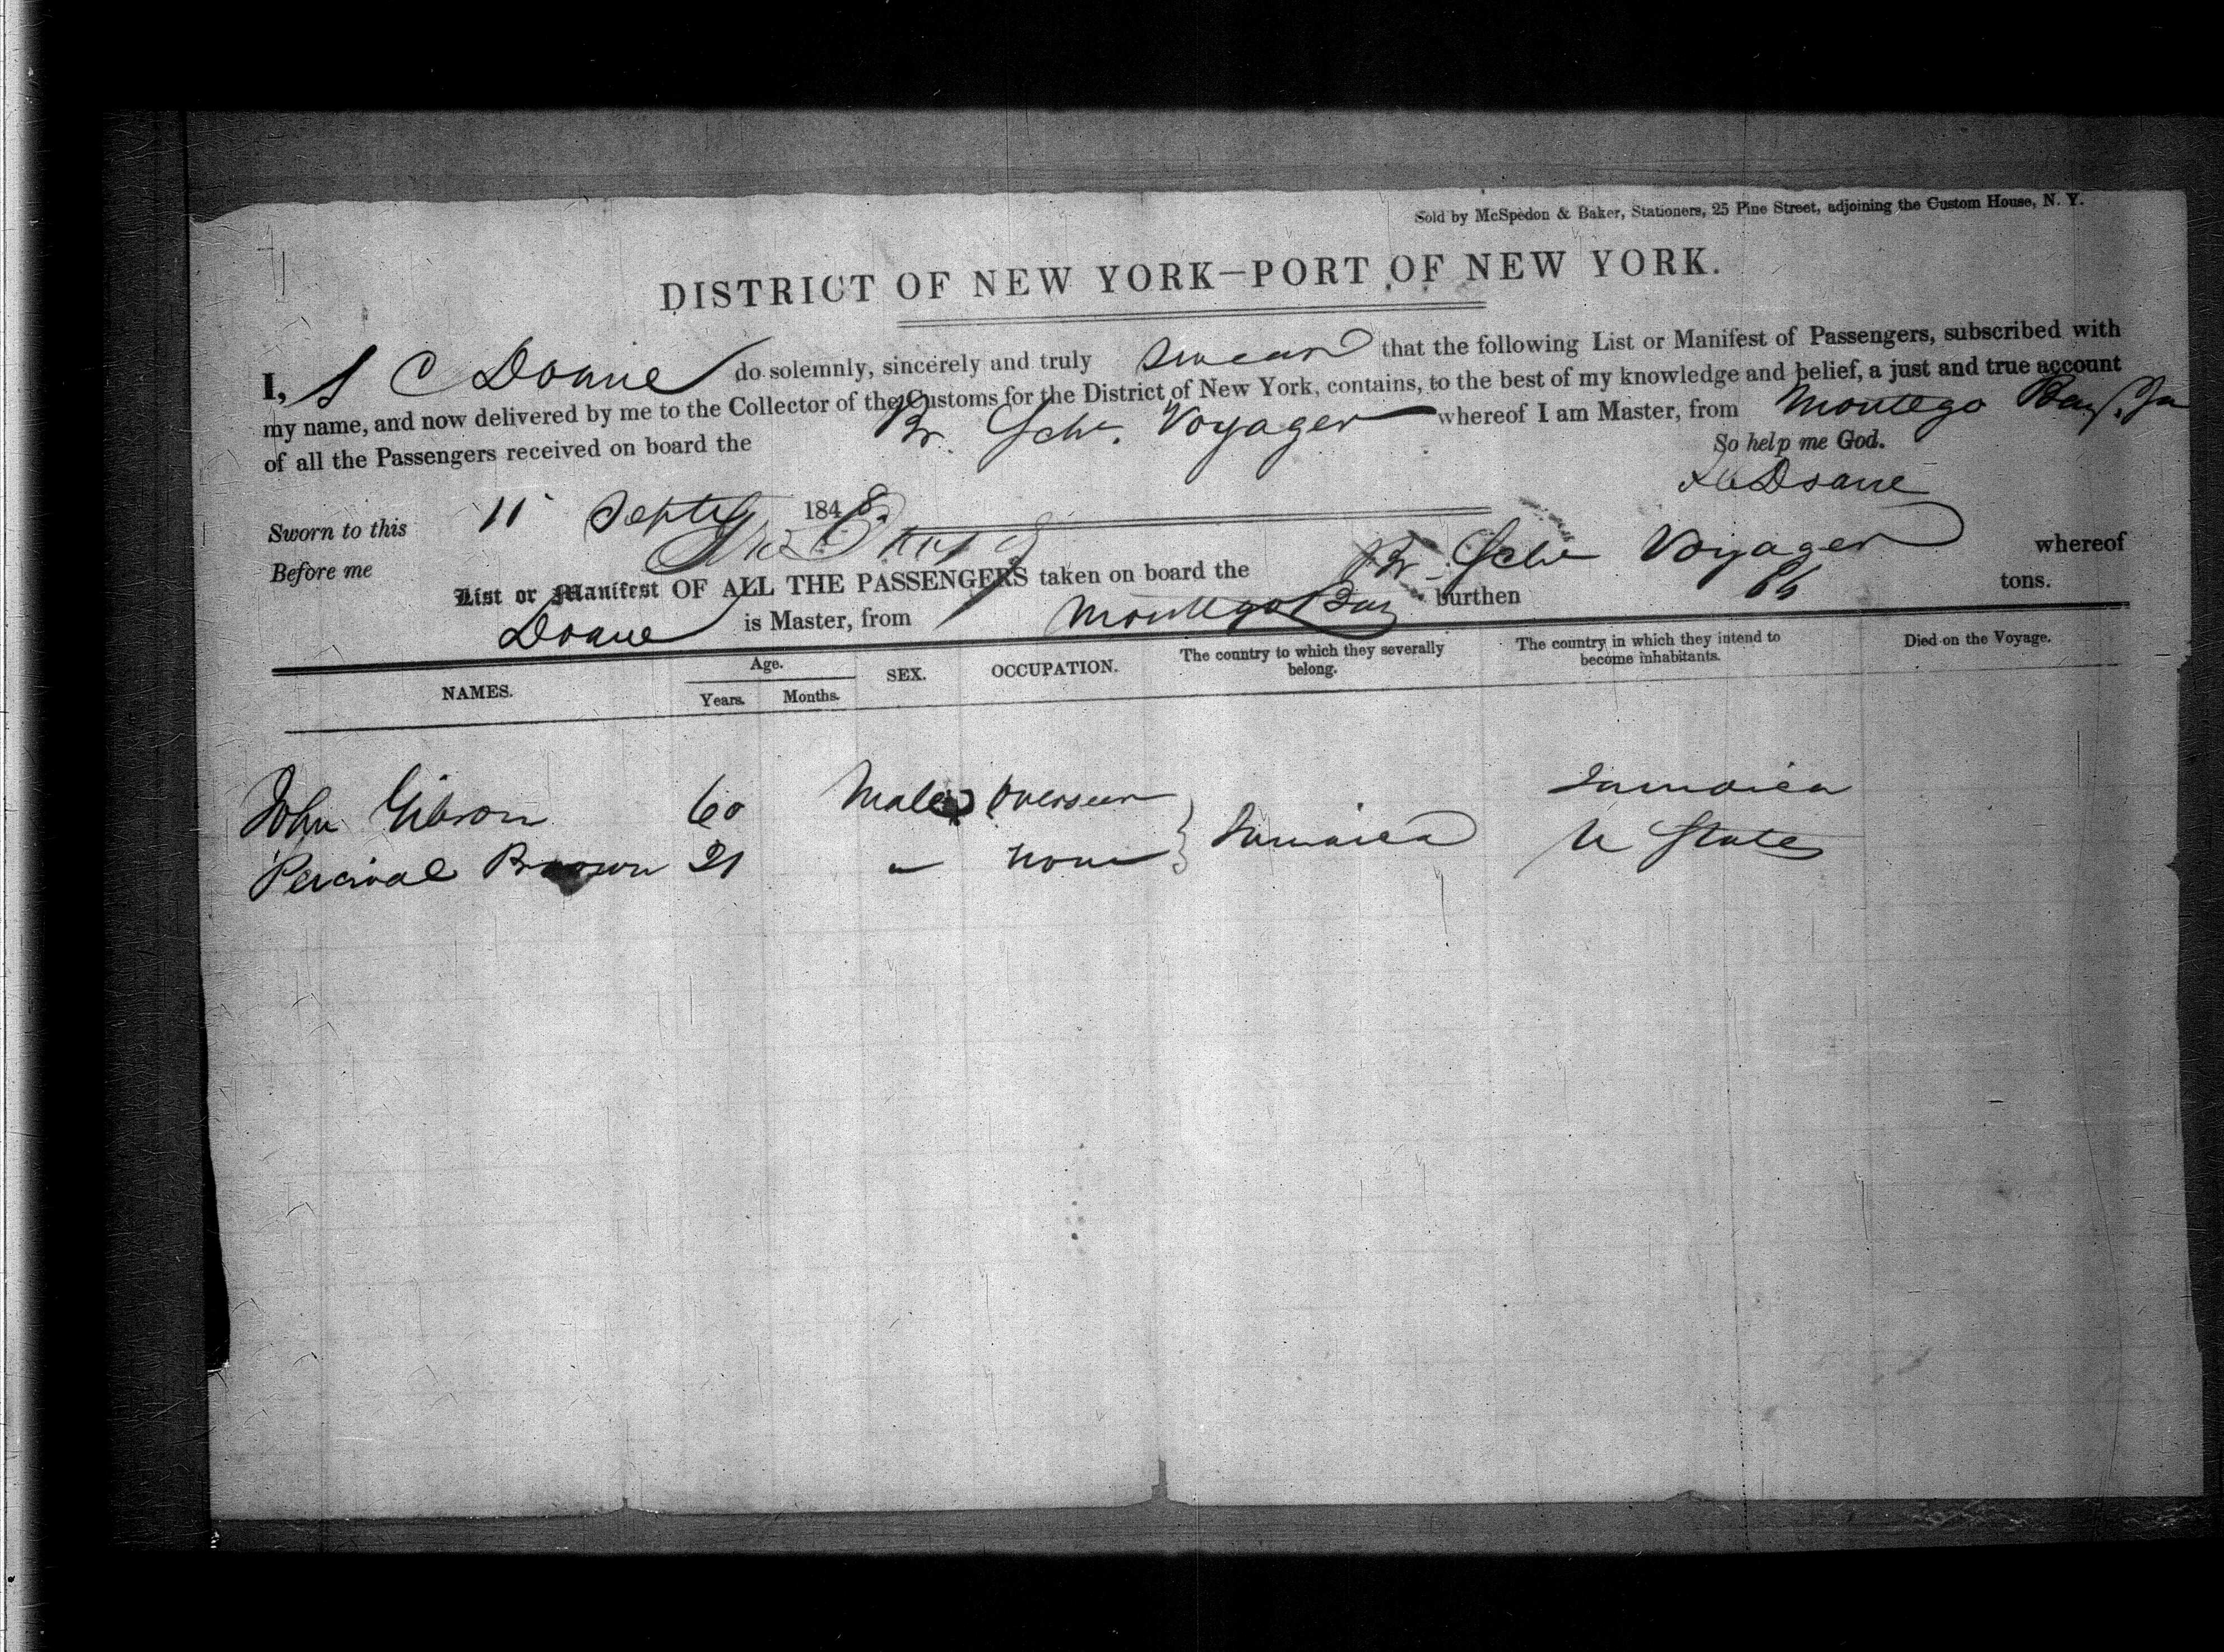 Sold by McSpedon & Baker, Stationers, 25 Pine Street, adjoining the Custom House, N. Y.
DISTRICT OF NEW YORK—PORT OF NEW YORK.
I, S C Doane do solemnly, sincerely and truly swear that the following List or Manifest of Passengers, subscribed with
my name, and now delivered by me to the Collector of the Customs for the District of New York, contains, to the best of my knowledge and belief, a just and true account
of all the Passengers received on board the Br. Schr. Voyager whereof I am Master, from Montego Bay, Ja
So help me God.
S C Doane
Sworn to this 11 Septr 1848.
Before me
List or Manifest OF ALL THE PASSENGERS taken on board the Br. Schr Voyager whereof
Doane is Master, from Montego Bay burthen 86 tons.
NAMES. Age. Years. Months. SEX. OCCUPATION. The country to which they severally belong. The country in which they intend to become inhabitants. Died on the Voyage.
John Gibson 60 Male Overseer Jamaica Jamaica
Percival Brown 21 " none U States